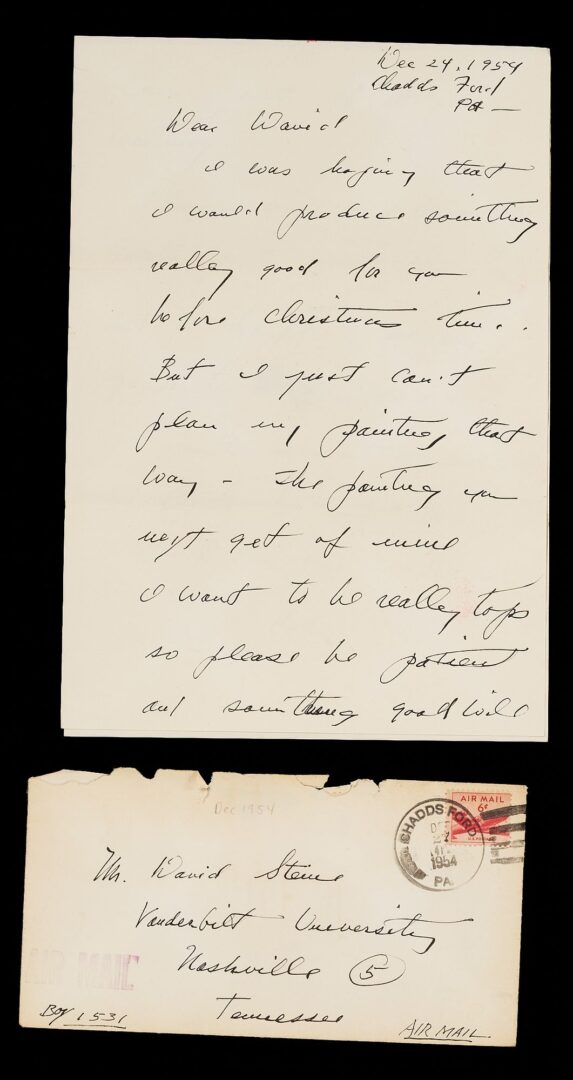 Dec 24, 1954
Chadds Ford
Pa —
Dear David
I was hoping that
I would produce something
really good for you
before christmas time.
But I just can't
plan my painting that
way – The painting you
next get of mine
I want to be really tops
so please be patient
and something good will
Dec 1954
AIR MAIL
6¢
CHADDS FORD
DEC
1954
PA.
Mr. David
Vanderbilt University
Nashville 5
Tennessee
AIR MAIL
Box 1531
AIR MAIL